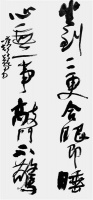 坐到二更合眼即睡
心無一事敲門不驚